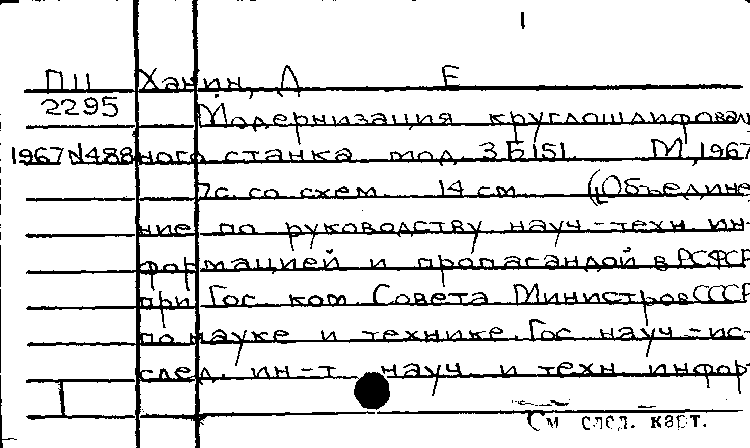 1
П11 Ханин, Д Е
2295 Модернизация круглошлифовал
1967 N488 ного станка мод. 3Б151. М, 1967
7с. со схем. 14 см. (Объедине
ние по руководству науч-техн ин-
формацией и пропагандой в РСФСР
при Гос. ком. Совета Министров СССР
по науке и технике. Гос науч-ис-
след. ин-т науч и техн. инфор
См след. карт.